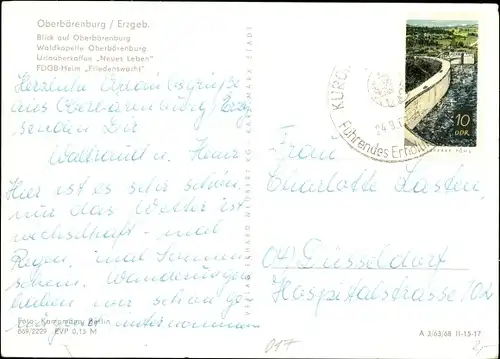 Oberbärenburg / Erzgeb.
Blick auf Oberbärenburg
Waldkapelle Oberbärenburg
Urlauberkaffee „Neues Leben"
FDGB-Heim „Friedenswacht"
Herzliche Urlaubsgrüße
aus Oberbärenburg/Erzg.
senden Dir
Waltraudt u. Heinz
Hier ist es sehr schön,
nur das Wetter ist
wechselhaft - mal
Regen, mal Sonnen-
schein. Wanderungen
haben wir schon
unternommen
Foto: Kampmann, Berlin
669/2229 EVP 0,15 M
KARL-MARX-STADT
10
DDR
KURO
24.9.
Führendes Erholu
Frau
Charlotte
(04) Düsseldorf
Hospitalstrasse
017
A 2/63/68 II-15-17